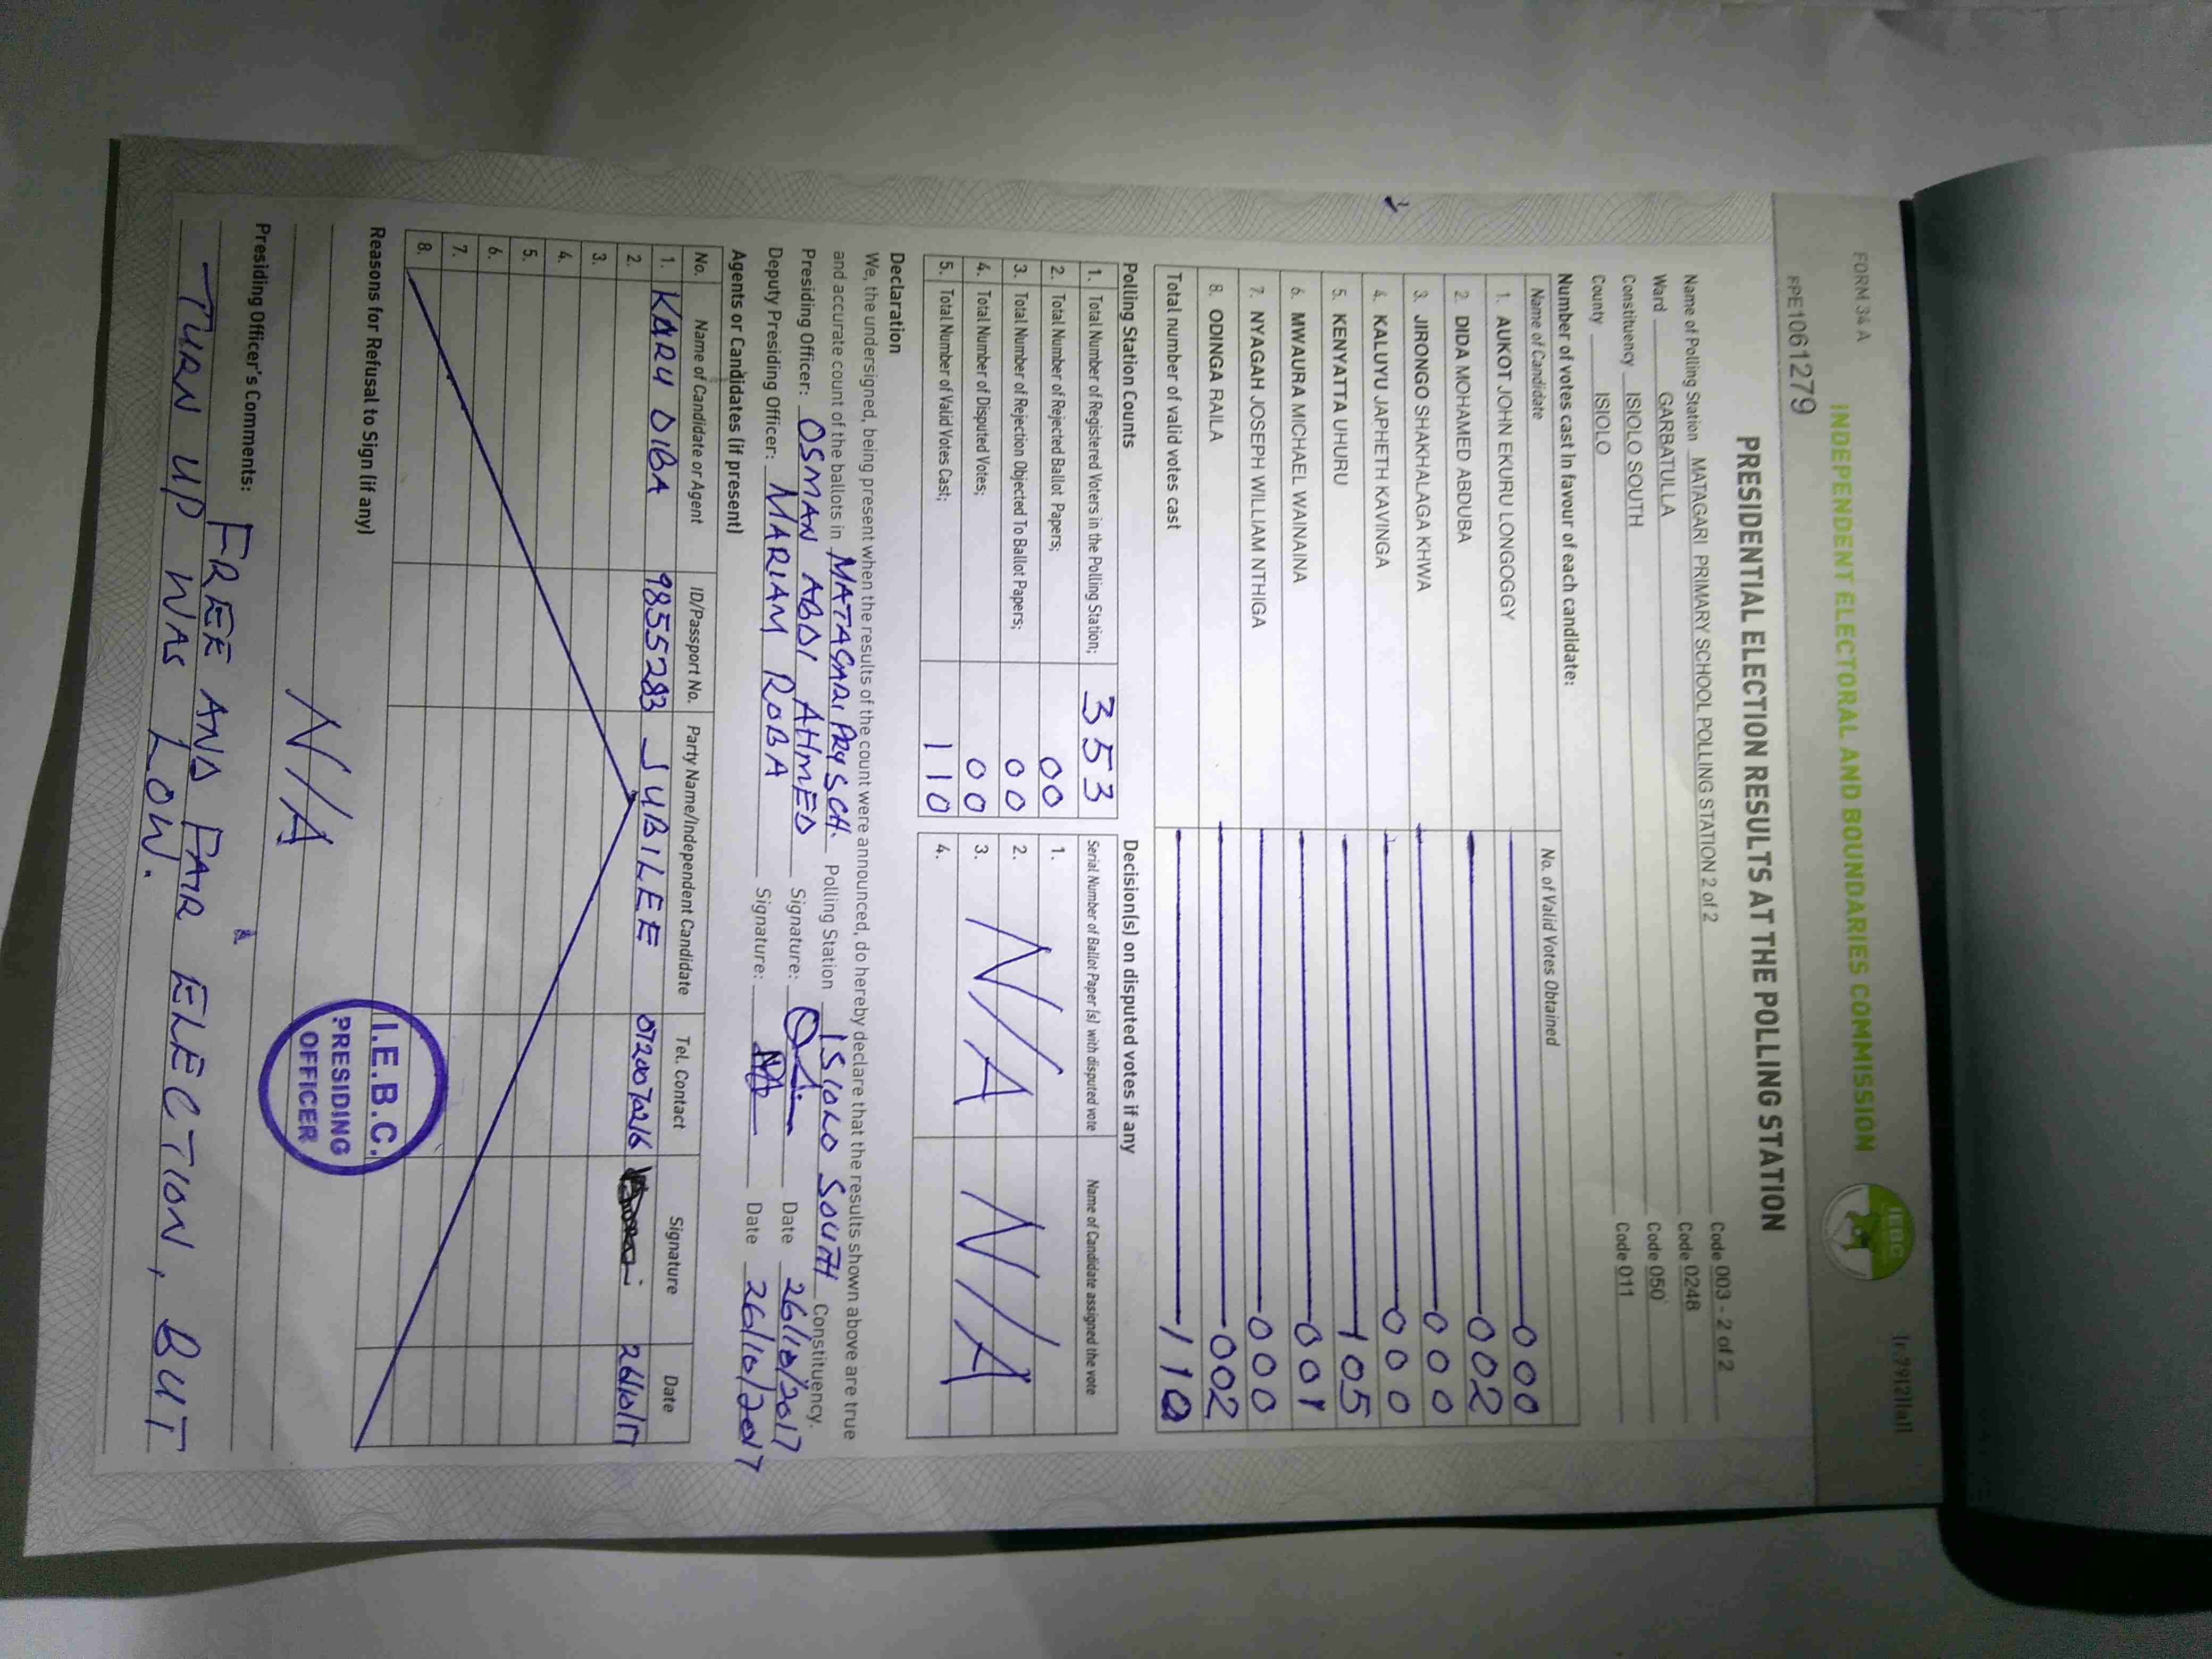 FORM 34 A
INDEPENDENT ELECTORAL AND BOUNDARIES COMMISSION
IEBC
FPE1061279
PRESIDENTIAL ELECTION RESULTS AT THE POLLING STATION
Name of Polling Station MATAGARI PRIMARY SCHOOL POLLING STATION 2 of 2 Code 003 - 2 of 2
Ward GARBATULLA Code 0248
Constituency ISIOLO SOUTH Code 050
County ISIOLO Code 011
Number of votes cast in favour of each candidate:
Name of Candidate No. of Valid Votes Obtained
1. AUKOT JOHN EKURU LONGOGGY 000
2. DIDA MOHAMED ABDUBA 002
3. JIRONGO SHAKHALAGA KHWA 000
4. KALUYU JAPHETH KAVINGA 000
5. KENYATTA UHURU 105
6. MWAURA MICHAEL WAINAINA 001
7. NYAGAH JOSEPH WILLIAM NTHIGA 000
8. ODINGA RAILA 002
Total number of valid votes cast 110
Polling Station Counts
1. Total Number of Registered Voters in the Polling Station; 353
2. Total Number of Rejected Ballot Papers; 00
3. Total Number of Rejection Objected To Ballot Papers; 00
4. Total Number of Disputed Votes; 00
5. Total Number of Valid Votes Cast; 110
Decision(s) on disputed votes if any
Serial Number of Ballot Paper (s) with disputed vote Name of Candidate assigned the vote
1.
2.
3. N/A N/A
4.
Declaration
We, the undersigned, being present when the results of the count were announced, do hereby declare that the results shown above are true
and accurate count of the ballots in MATAGARI PRY SCH. Polling Station ISIOLO SOUTH Constituency.
Presiding Officer: OSMAN ABDI AHMED Signature: Date 26/10/2017
Deputy Presiding Officer: MARIAM ROBA Signature: Date 26/10/2017
Agents or Candidates (if present)
No. Name of Candidate or Agent ID/Passport No. Party Name/Independent Candidate Tel. Contact Signature Date
1. KARU DIBA 9855283 JUBILEE 26/10/17
2.
3.
4.
5.
6.
7.
8.
Reasons for Refusal to Sign (if any)
N/A
I.E.B.C.
PRESIDING
OFFICER
Presiding Officer's Comments: FREE AND FAIR ELECTION, BUT
TURN UP WAS LOW.